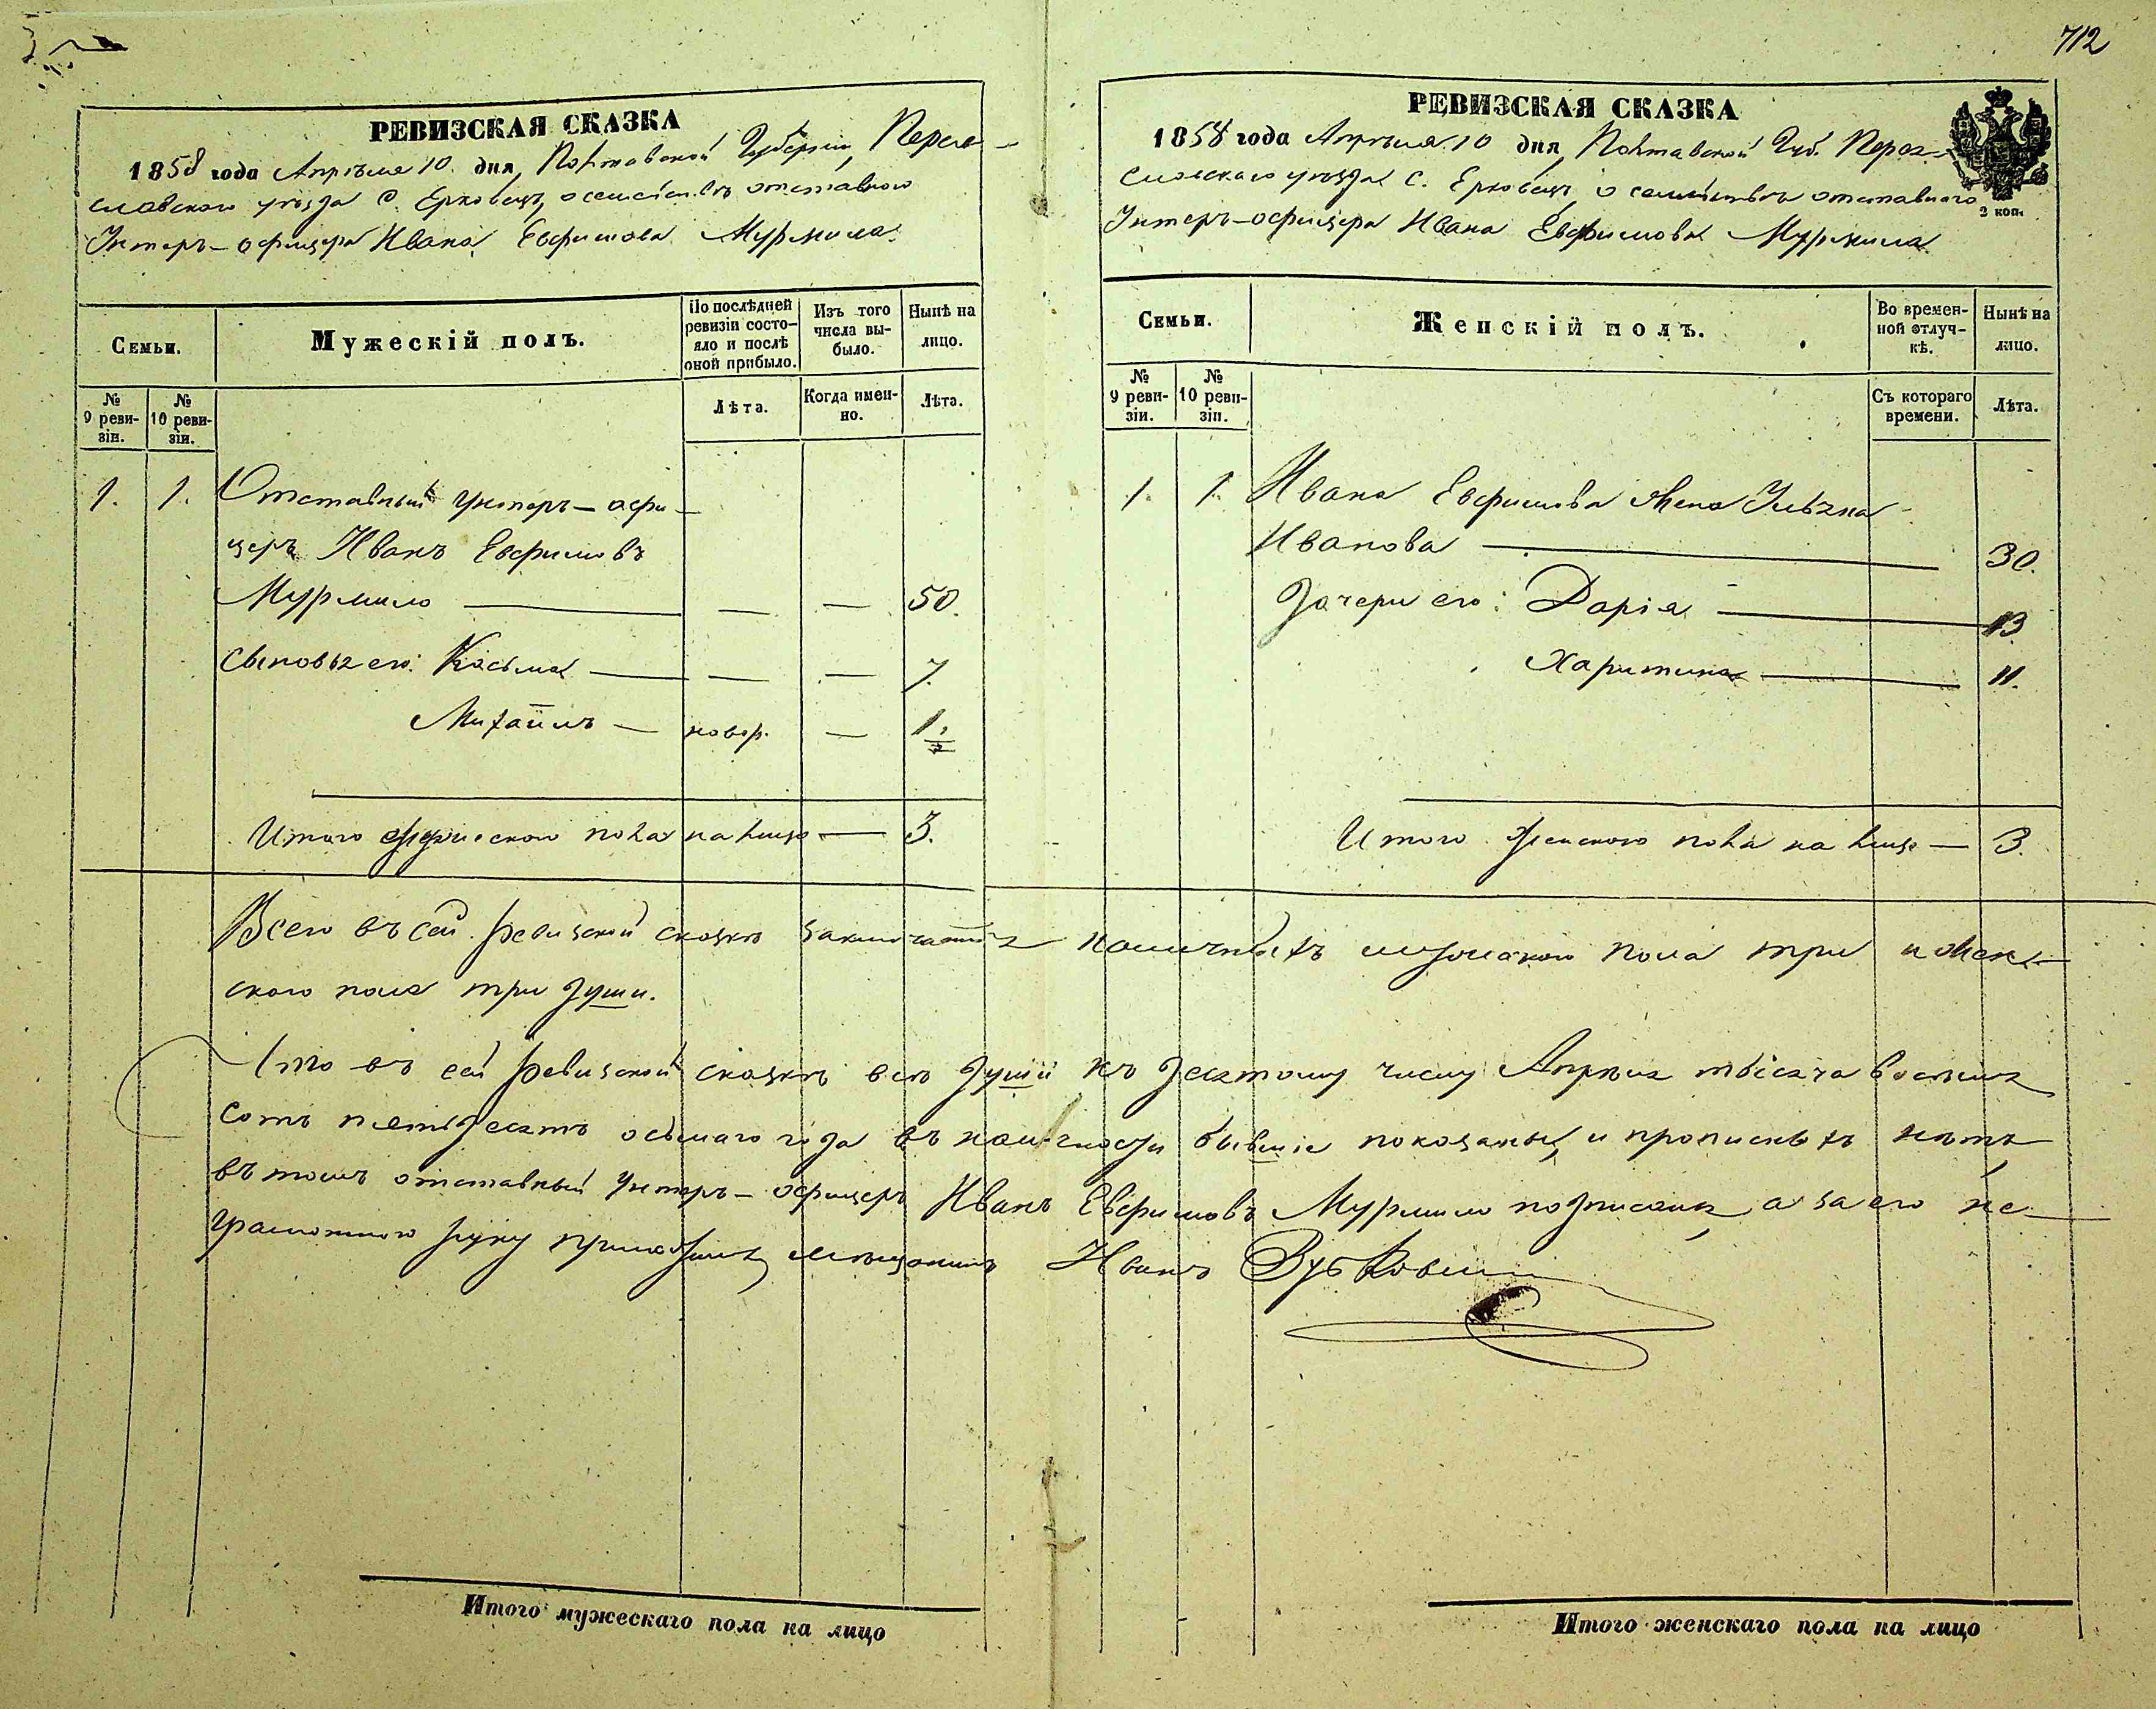 712
РЕВИЗСКАЯ СКАЗКА
1858 года Апрѣля 10. дня, Полтавской Губерніи, Перея-
славскаго уѣзда С. Ерковецъ, о семействѣ отставнаго
Унтеръ-офицера Ивана Евфимова Мурмила.
Семьи.
Мужескій полъ.
По послѣдней ревизіи состо-
яло и послѣ оной прибыло.
Изъ того числа вы-
было.
Нынѣ на лицо.
№ 9 реви-
зіи.
№ 10 реви-
зіи.
Лѣта.
Когда имен-
но.
Лѣта.
1. 1. Отставный Унтеръ-офи-
церъ Иванъ Евфимовъ
Мурмило — — — 50.
Сыновья его: Косьма — — — 7.
Михаилъ — новор. — 1.
Итого мужескаго пола на лицо — 3.
РЕВИЗСКАЯ СКАЗКА
1858 года Апрѣля 10 дня, Полтавской Губ. Перея-
славскаго уѣзда С. Ерковецъ, о семействѣ отставнаго
2 коп.
Унтеръ-офицера Ивана Евфимова Мурмила
Семьи.
Женскій полъ.
Во времен-
ной отлуч-
кѣ.
Нынѣ на лицо.
№ 9 реви-
зіи.
№ 10 реви-
зіи.
Съ котораго времени.
Лѣта.
1. 1. Ивана Евфимова жена
Иванова — 30.
Дочери его: Дарія — 13
Харитина — 11.
Итого женского пола на лицо — 3.
Всего въ сей ревизской сказкѣ заключается наличныхъ мужескаго пола три и жен-
ского пола три души.
Что въ сей ревизской сказкѣ всѣ души къ десятому числу Апрѣля тысяча восемь
сотъ пятьдесятъ осьмаго года въ наличности бывшіе показаны, и прописныхъ нѣтъ
въ томъ отставный Унтеръ-офицеръ Иванъ Евфимовъ Мурмило подписался, а за его не-
грамотного руку приложилъ мѣщанинъ Иванъ
Итого мужескаго пола на лицо
Итого женскаго пола на лицо